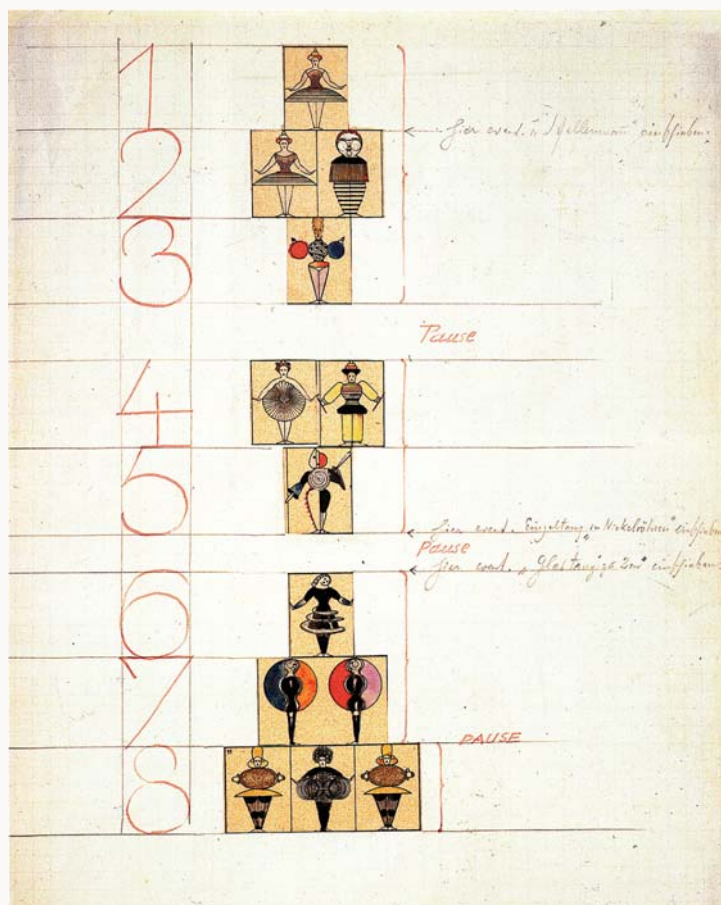 1
hier event. " einschieben.
2
3
Pause
4
5
hier event. Einzeltanz „in Nickelröhren" einschieben
Pause
hier event. „Glastanz zu 2en" einschieben.
6
7
PAUSE
8